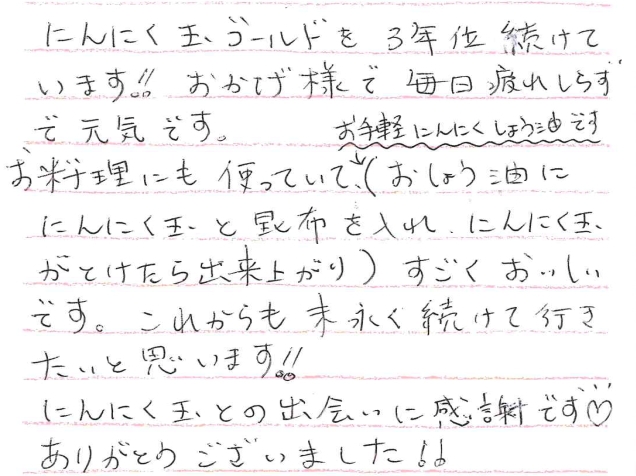 にんにく玉ゴールドを3年位続けて
います!! おかげ様で毎日疲れしらず
で元気です。
お手軽にんにくしょう油です
お料理にも使っていて、(おしょう油に
にんにく玉と昆布を入れ、にんにく玉
がとけたら出来上がり)すごくおいしい
です。これからも末永く続けて行き
たいと思います!!
にんにく玉との出会いに感謝です♡
ありがとうございました!!